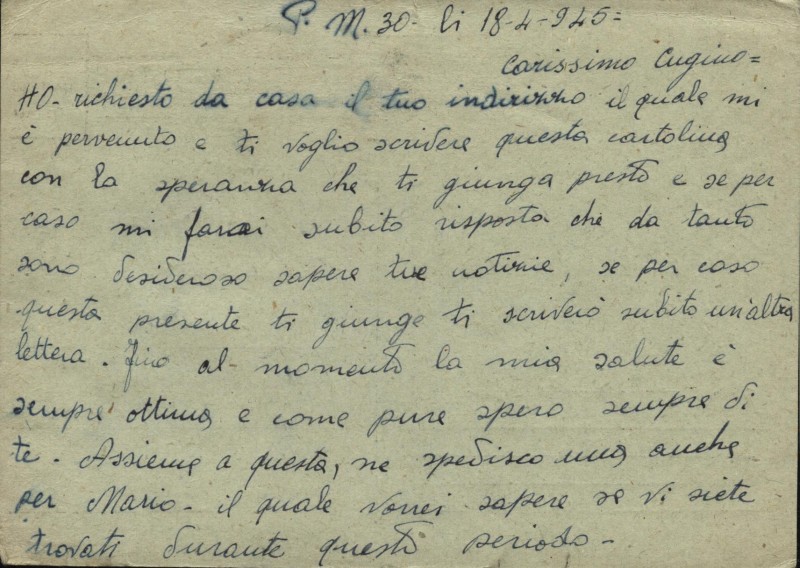 P. M. 30- li 18-4-945=
Carissimo Cugino=
HO- richiesto da casa il tuo indirizzo il quale mi
è pervenuto e ti voglio scrivere questa cartolina
con la speranza che ti giunga presto e se per
caso mi farai subito risposta che da tanto
sono desideroso sapere tue notizie, se per caso
questa presente ti giunge ti scriverò subito un'altra
lettera. Fino al momento la mia salute è
sempre ottima e come pure spero sempre di
te. Assieme a questa, ne spedisco una anche
per Mario- il quale vorrei sapere se vi siete
trovati durante questo periodo-